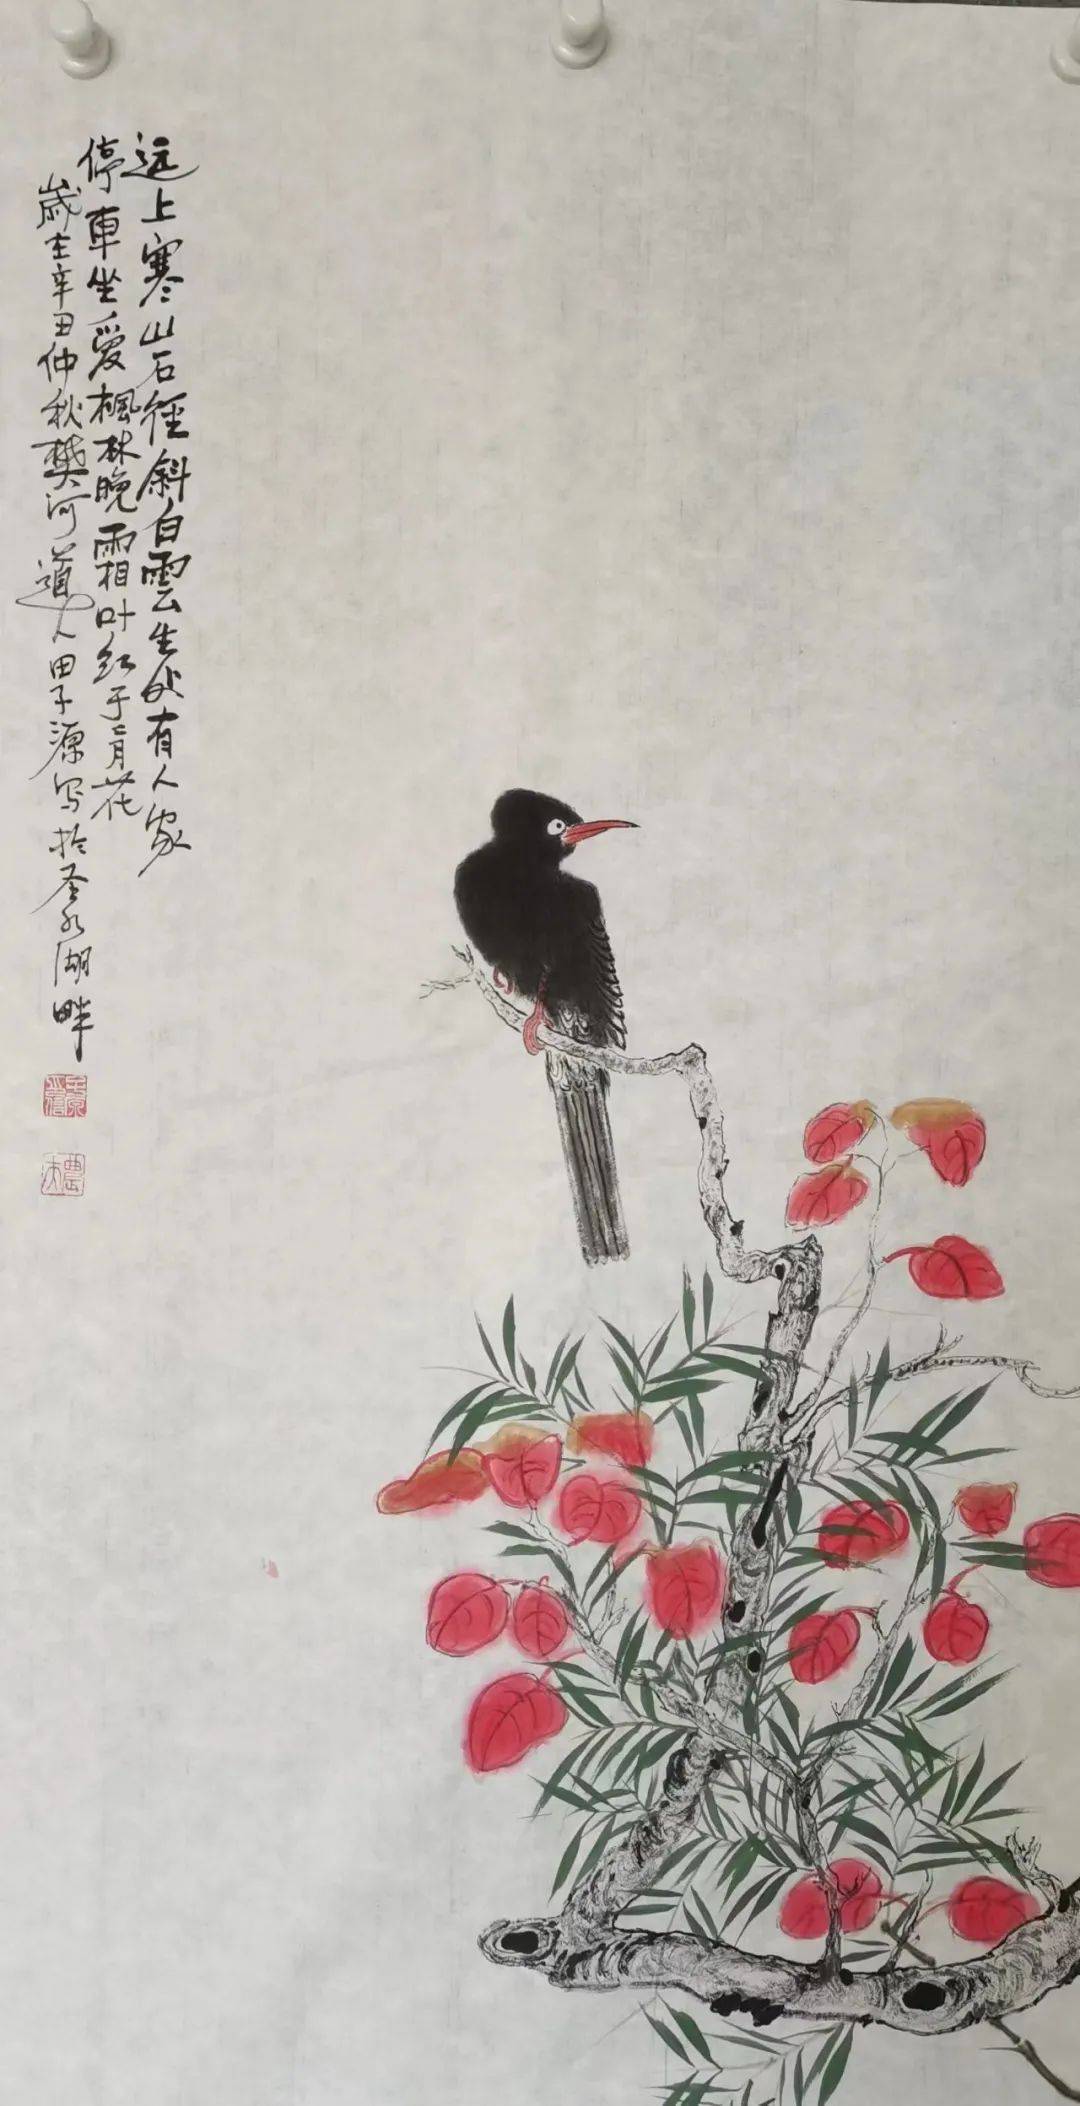 远上寒山石径斜白雲生处有人家
停車坐爱楓林晚霜叶红于二月花
歲在辛丑仲秋樊河道人田子源写於圣水湖畔